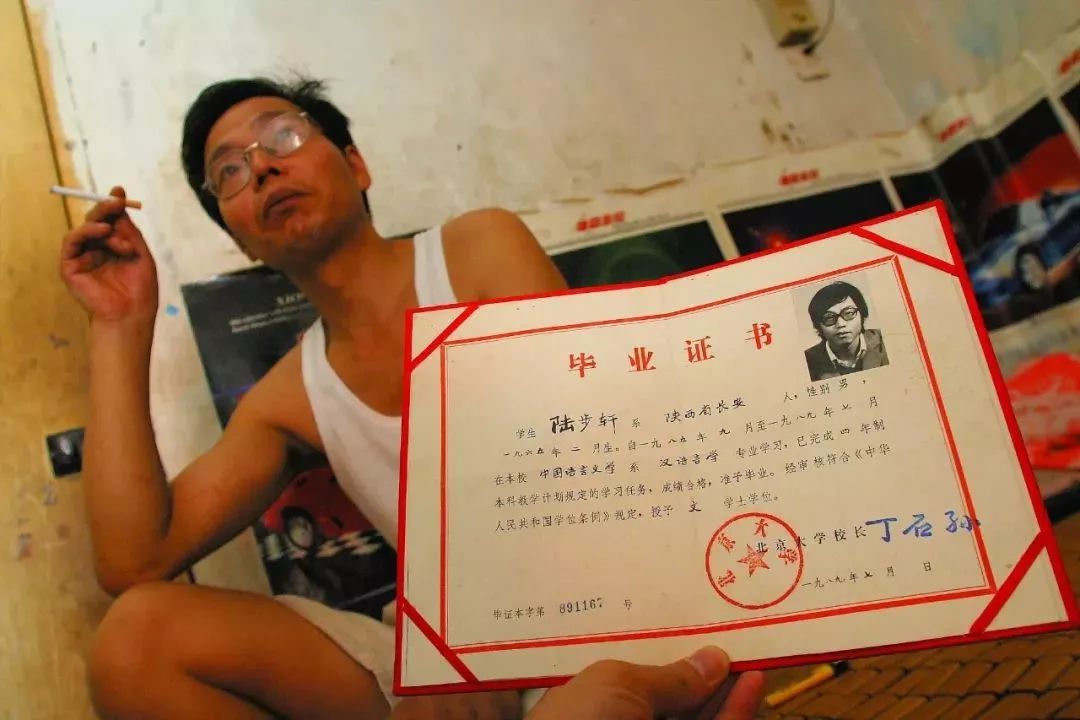 毕业证书
学生 陆步轩 系 陕西省长安 人，性别男，
一九六五年二月生。自一九八五年九月至一九八九年七月
在本校 中国语言文学 系 汉语言学 专业学习，已完成四年制
本科教学计划规定的学习任务，成绩合格，准予毕业。经审核符合《中华
人民共和国学位条例》规定，授予 文 学士学位。
北京大学校长 丁石孙
北京大学
一九八九年七月 日
毕证本字第 891167 号